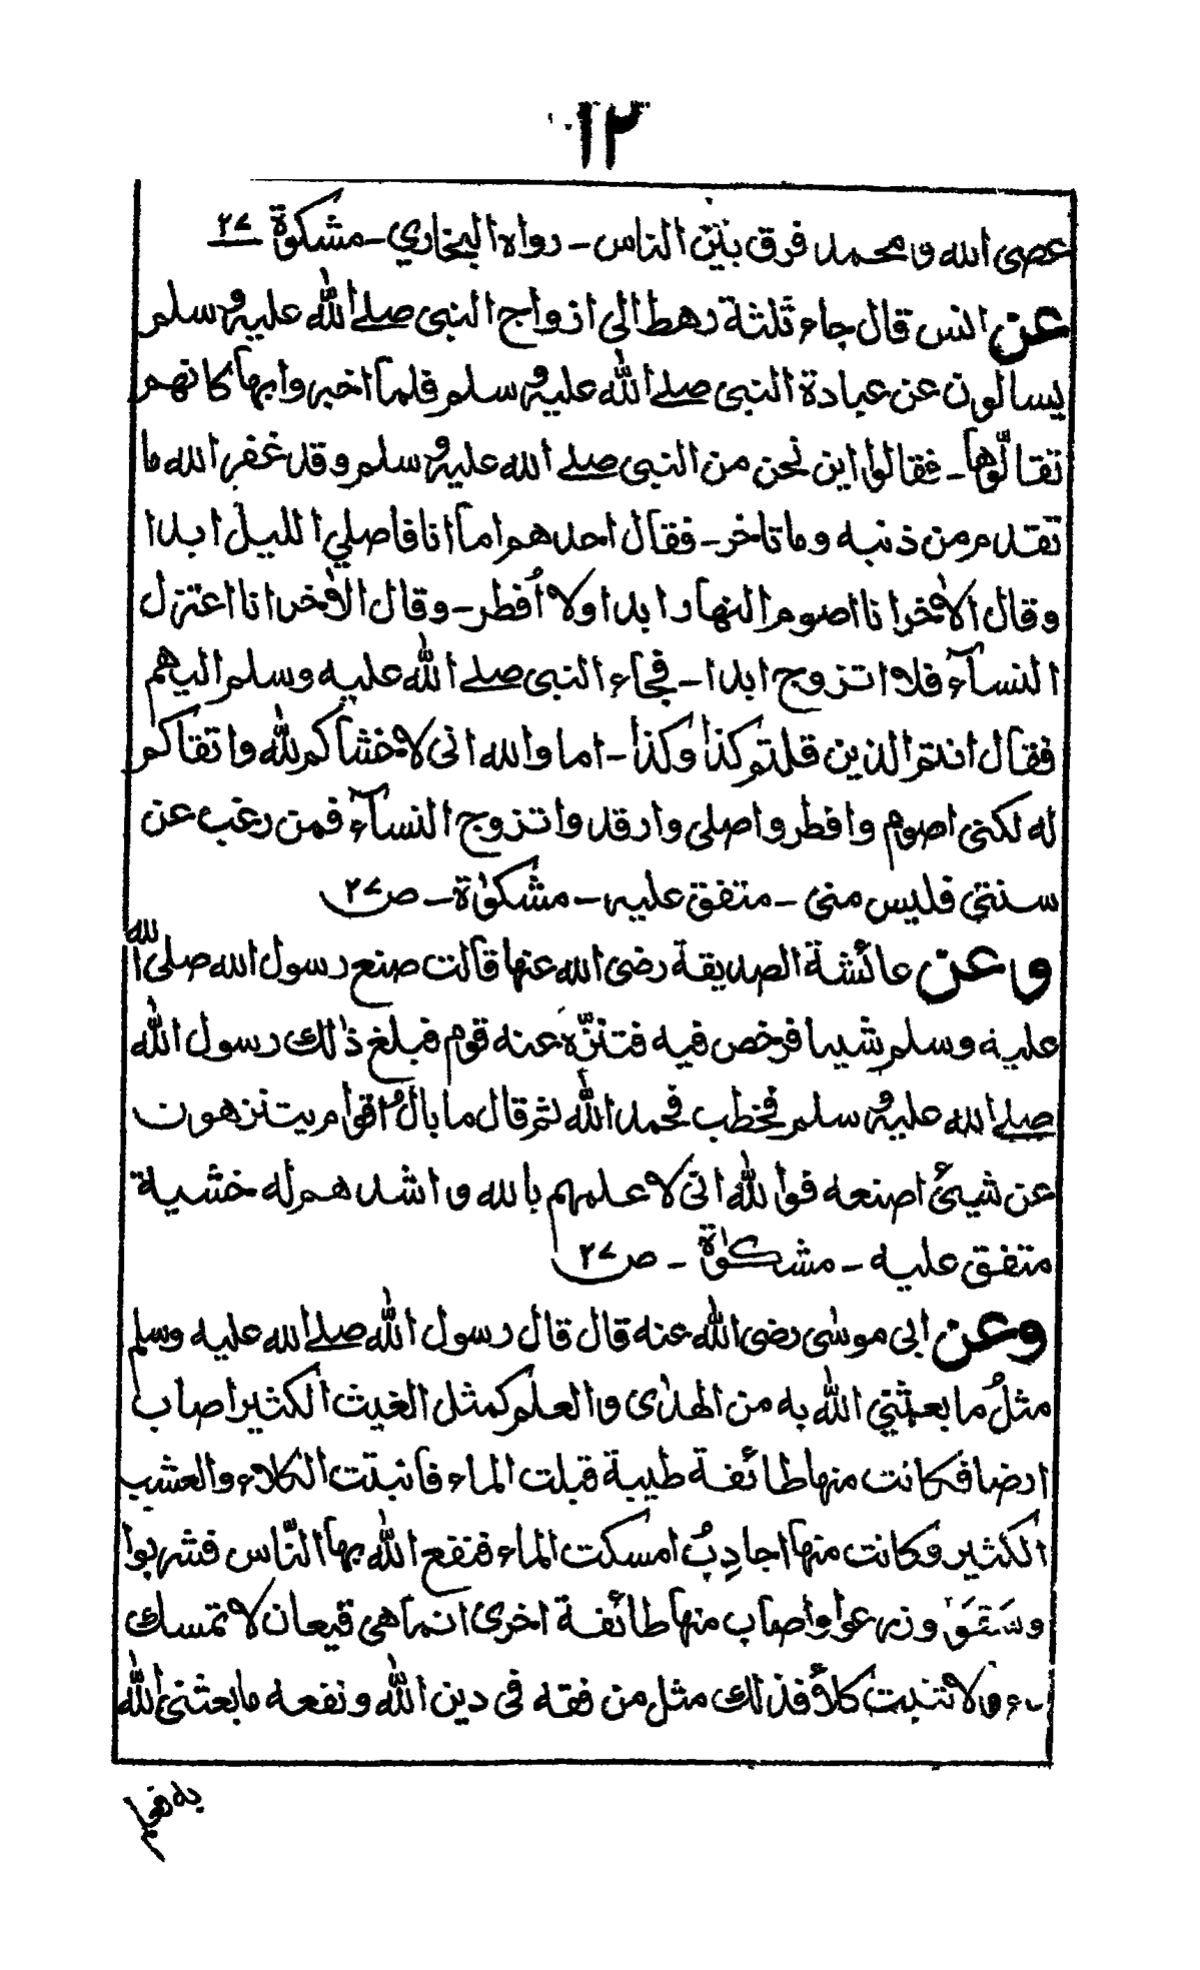 ١٢
عصى الله ومحمد فرق بين الناس ـ رواه البخاري ـ مشكوة ٢٧
عن انس قال جاء ثلثة رهط الى ازواج النبى صلے الله عليه وسلم
يسالون عن عبادة النبى صلے الله عليه وسلم فلما اخبروا بها كانهم
تقالّوها ـ فقالوا اين نحن من النبى صلے الله عليه وسلم وقد غفر الله ما
تقدم من ذنبه وما تاخر ـ فقال احدهم اما انا فاصلي الليل ابدا
وقال الاٰخر انا اصوم النهار ابدا ولا اُفطر ـ وقال الاٰخر انا اعتزل
النسآء فلا اتزوج ابدا ـ فجاء النبى صلے الله عليه وسلم اليهم
فقال انتم الذين قلتم كذا وكذا ـ اما والله انى لاخشاكم لله واتقاكم
له لكنى اصوم وافطر واصلى وارقد واتزوج النسآء فمن رغب عن
سنتي فليس منى ـ متفق عليه ـ مشكوٰة ـ ص٢٧
وعن عائشة الصديقة رضى الله عنها قالت صنع رسول الله صلى الله
عليه وسلم شيا فرخص فيه فتنزّه عنه قوم فبلغ ذٰلك رسول الله
صلے الله عليه وسلم فخطب فحمد الله ثم قال ما بال اقوام يتنزهون
عن شيئ اصنعه فوالله انى لاعلمهم بالله واشدهم له خشية
متفق عليه ـ مشكوٰة ـ ص٢٧
وعن ابى موسٰى رضى الله عنه قال قال رسول الله صلے الله عليه وسلم
مثلُ ما بعثني الله به من الهدٰى والعلم كمثل الغيث الكثير اصاب
ارضا فكانت منها طائفة طيبة قبلت الماء فانبتت الكلاء والعشب
الكثير وكانت منها اجادِبُ امسكت الماء فنفع الله بها النّاس فشربوا
وسَقَوَا وزرعوا واصاب منها طائفة اخرى انما هى قيعان لا تمسك
ماء ولا تنبت كلأ فذلك مثل من فقه فى دين الله ونفعه ما بعثنى الله
به فعلم